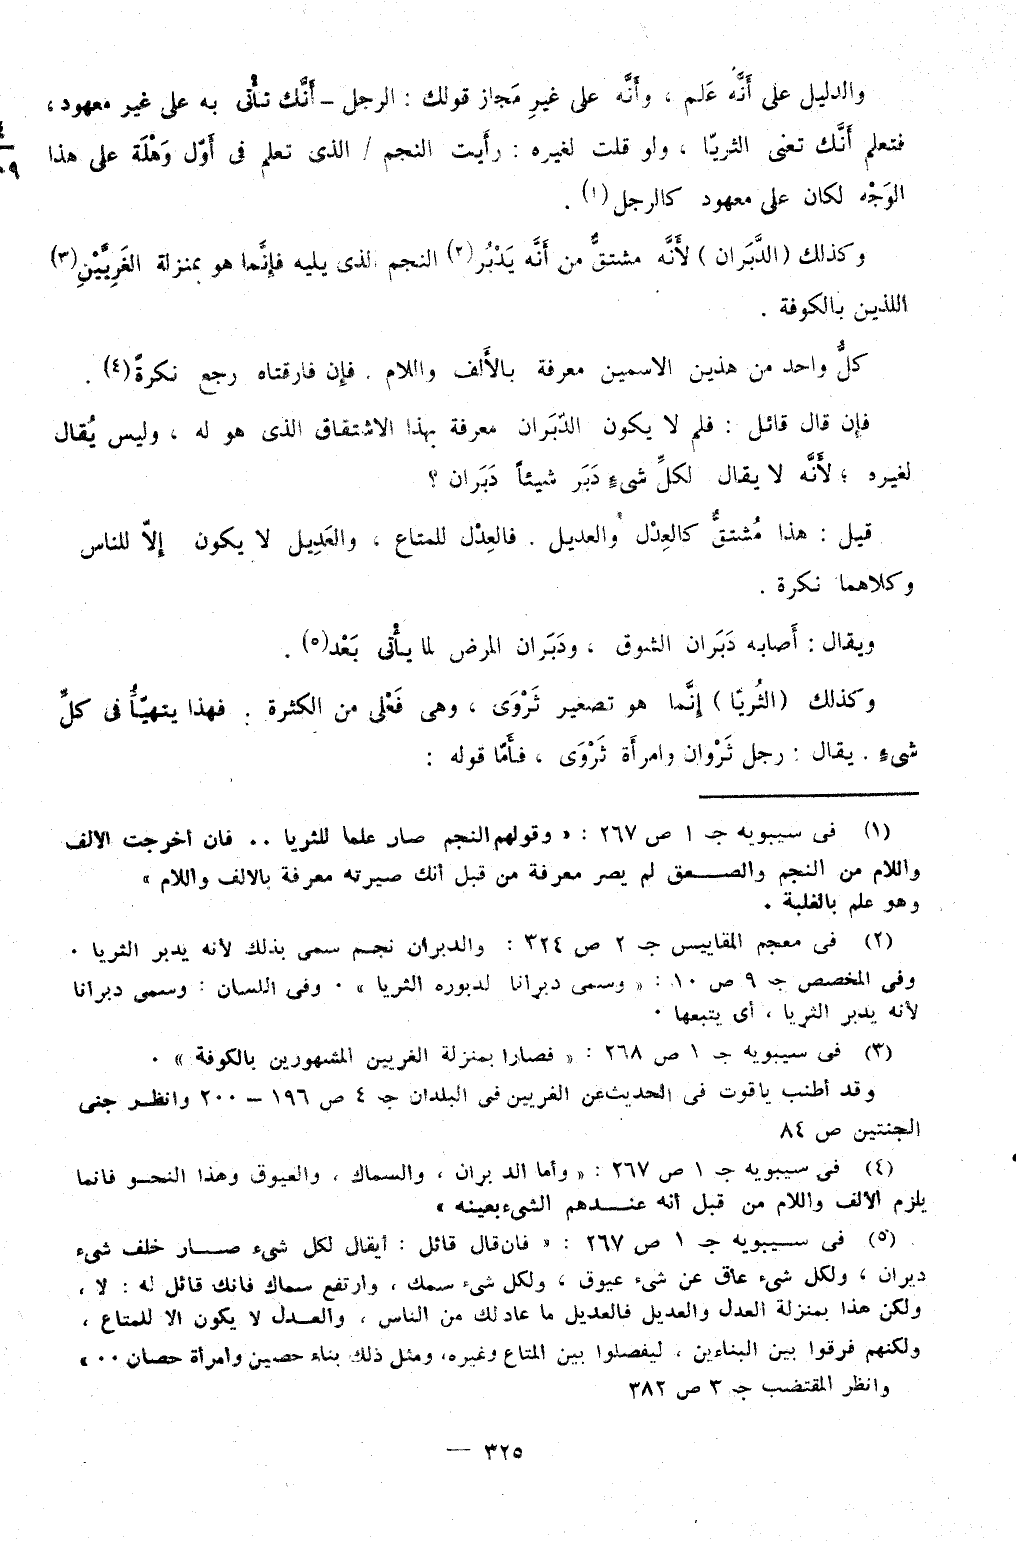 والدليل على أَنَّه عَلم ، وأَنَّه على غيرِ مَجاز قولك : الرجل – أَنَّك تأْتى به على غير معهود ،
فتعلم أَنَّك تعنى الثريّا ، ولو قلت لغيره : رأَيت النجم / الذى تعلم فى أَوّل وَهْلَة على هذا
٤
٠٩
الوَجْه لكان على معهود كالرجل(١) .
وكذلك (الدَّبَران) لأَنَّه مشتقٌّ من أَنَّه يَدْبُر(٢) النجم الذى يليه فإِنَّما هو بمنزلة الغَرِيَّيْنِ(٣)
اللذين بالكوفة .
كلُّ واحد من هذين الاسمين معرفة بالأَلف واللام . فإِن فارقتاه رجع نكرةً(٤) .
فإِن قال قائل : فلم لا يكون الدّبَران معرفة بهذا الاشتقاق الذى هو له ، وليس يُقال
لغيره ؛ لأَنَّه لا يقال لكلِّ شىءٍ دَبَر شيئاً دَبَران ؟
قيل : هذا مُشتقٌّ كالعِدْل والعديل . فالعِدْل للمتاع ، والعَدِيل لا يكون إِلاّ للناس
وكلاهما نكرة .
ويقال : أَصابه دَبَران الشوق ، ودَبَران المرض لما يأْتى بَعْد(٥) .
وكذلك (الثُريّا) إِنَّما هو تصغير ثَرْوَى ، وهى فَعْلى من الكثرة . فهذا يتهيّأُ فى كلِّ
شىءٍ . يقال : رجل ثَرْوان وامرأَة ثَرْوَى ، فأَمّا قوله :
(١) فى سيبويه جـ ١ ص ٢٦٧ : « وقولهم النجم صار علما للثريا .. فان أخرجت الألف
واللام من النجم والصـــعق لم يصر معرفة من قبل أنك صيرته معرفة بالالف واللام »
وهو علم بالغلبة .
(٢) فى معجم المقاييس جـ ٢ ص ٣٢٤ : والدبران نجم سمى بذلك لأنه يدبر الثريا .
وفى المخصص جـ ٩ ص ١٠ : « وسمى دبرانا لدبوره الثريا » . وفى اللسان : وسمى دبرانا
لأنه يدبر الثريا ، أى يتبعها .
(٣) فى سيبويه جـ ١ ص ٢٦٨ : « فصارا بمنزلة الغريين المشهورين بالكوفة » .
وقد أطنب ياقوت فى الحديث عن الغريين فى البلدان جـ ٤ ص ١٩٦ – ٢٠٠ وانظر جنى
الجنتين ص ٨٤
(٤) فى سيبويه جـ ١ ص ٢٦٧ : « وأما الدبران ، والسماك ، والعيوق وهذا النحو فانما
يلزم الألف واللام من قبل أنه عنــدهم الشىء بعينه »
(٥) فى ســيبويه جـ ١ ص ٢٦٧ : « فان قال قائل : أيقال لكل شىء صـــار خلف شىء
دبران ، ولكل شىء عاق عن شىء عيوق ، ولكل شىء سمك ، وارتفع سماك فانك قائل له : لا ،
ولكن هذا بمنزلة العدل والعديل فالعديل ما عادلك من الناس ، والعــدل لا يكون الا للمتاع ،
ولكنهم فرقوا بين البناءين ، ليفصلوا بين المتاع وغيره، ومثل ذلك بناء حصين وامرأة حصان .. »
وانظر المقتضب جـ ٣ ص ٣٨٢
— ٣٢٥